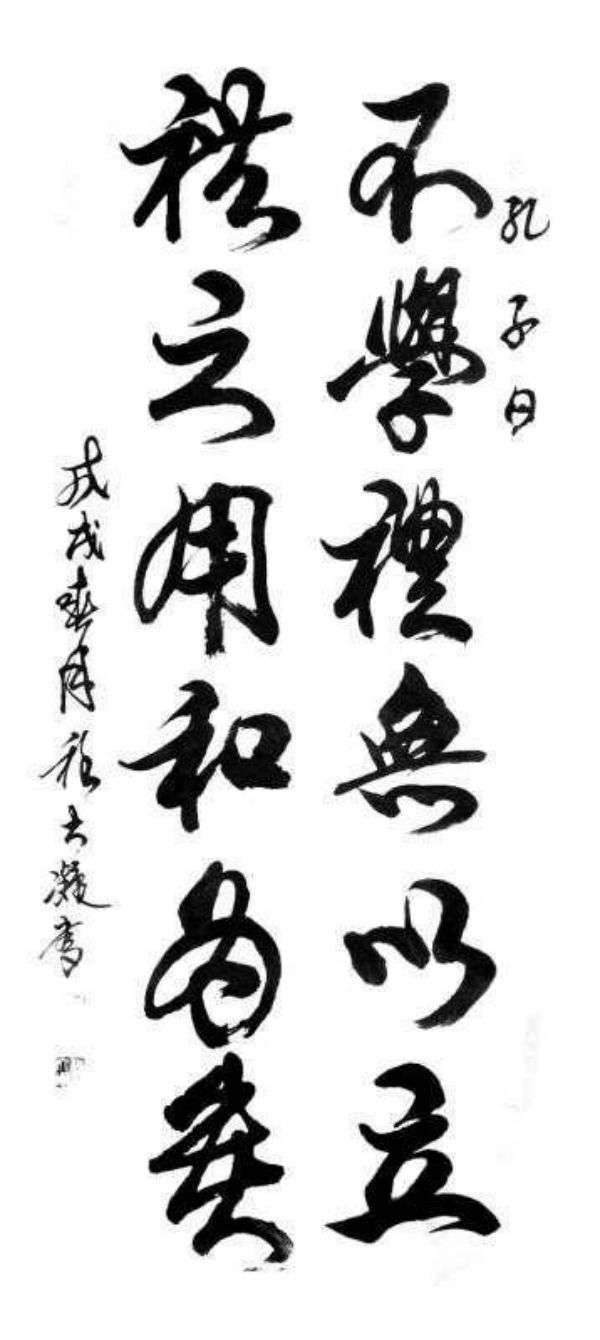 孔子曰
不學禮無以立
禮之用和為貴
戊戌春月程大凝書